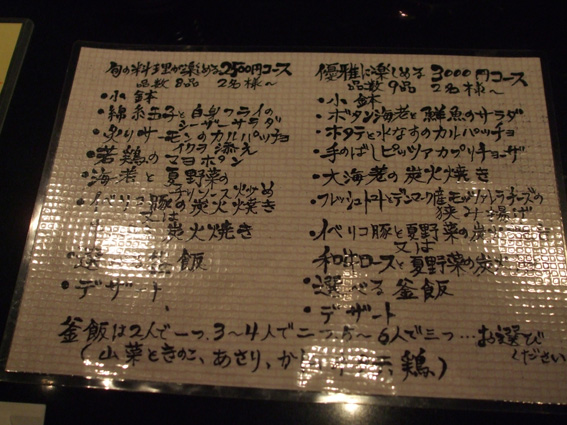 旬の料理が楽しめる2500円コース
品数8品 2名様〜
・小鉢
・錦糸玉子と白身フライの
シーザーサラダ
・炙りサーモンのカルパッチョ
イクラ添え
・若鶏のマヨボタン
・海老と夏野菜の
チリソース炒め
・イベリコ豚の炭火焼き
又は
炭火焼き
・選 飯
・デザート
優雅に楽しめる3000円コース
品数9品 2名様〜
・小鉢
・ボタン海老と鮮魚のサラダ
・ホタテと水なすのカルパッチョ
・手のばしピッツァカプリチョーザ
・大海老の炭火焼き
・フレッシュトマトとデンマーク産モッツァレラチーズの
挟み揚げ
・イベリコ豚と夏野菜の炭火焼き
又は
和牛ロースと夏野菜の炭
・選べる釜飯
・デザート
釜飯は2人で一つ、3〜4人で二つ、5〜6人で三つ…お選び
ください
(山菜ときのこ、あさり、か 鶏)